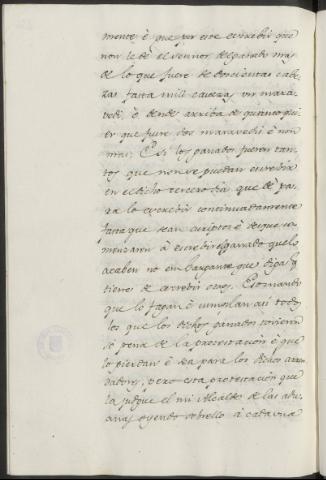 mente è que por este escrebir que
non le dè el sennor del ganado mas
de lo que fuere de doscientas cabe-
zas fasta mill cavezas un mara-
vedi, è dende arriba de quanto qui-
er que fure dos maravedis è non
mas; E si los ganados fueren tan-
tos que non se puedan escrebir
en el dicho tercero dia que dè pa-
ra lo escrebir continuadamente
fasta que sean escriptos è desque co-
menzaren à escrebir el ganado que lo
acaben no embargante que diga q.
tiene de escrebir otros. E mando
que lo fagan è cumplan asi todos
los que los dichos ganados tovieren
sò pena de la protestacion è que
lo pierdan è sea para los dichos arren-
dadores, pero esta protestacion que
la judgue el mi Alcalde de las adu-
anas oyendo sobrello à cada una